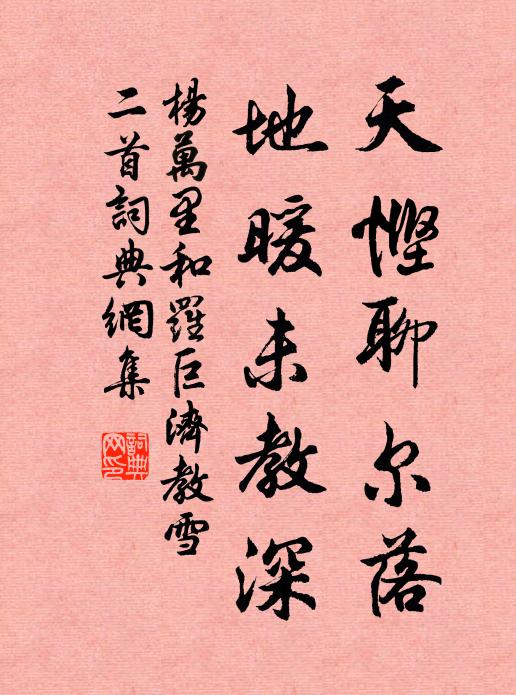 天悭聊尔落
地暖未教深
楊萬里和羅巨濟教雪
二首詞典網集
詞典網印